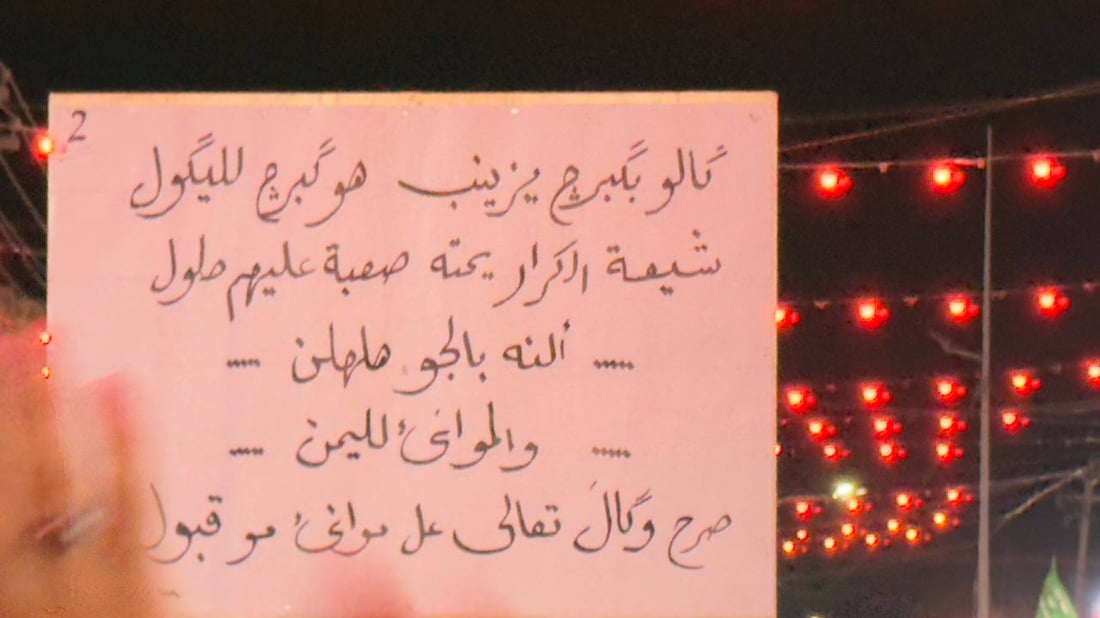 2
گالو بگبرچ يزينب هو گبرچ لليگول
شيعة الكرار يمته صعبة عليهم طول
..... ألنه بالجو هلهلن .....
..... والموانئ لليمن .....
صرح وگال تعالى عل موانئ مو قبول